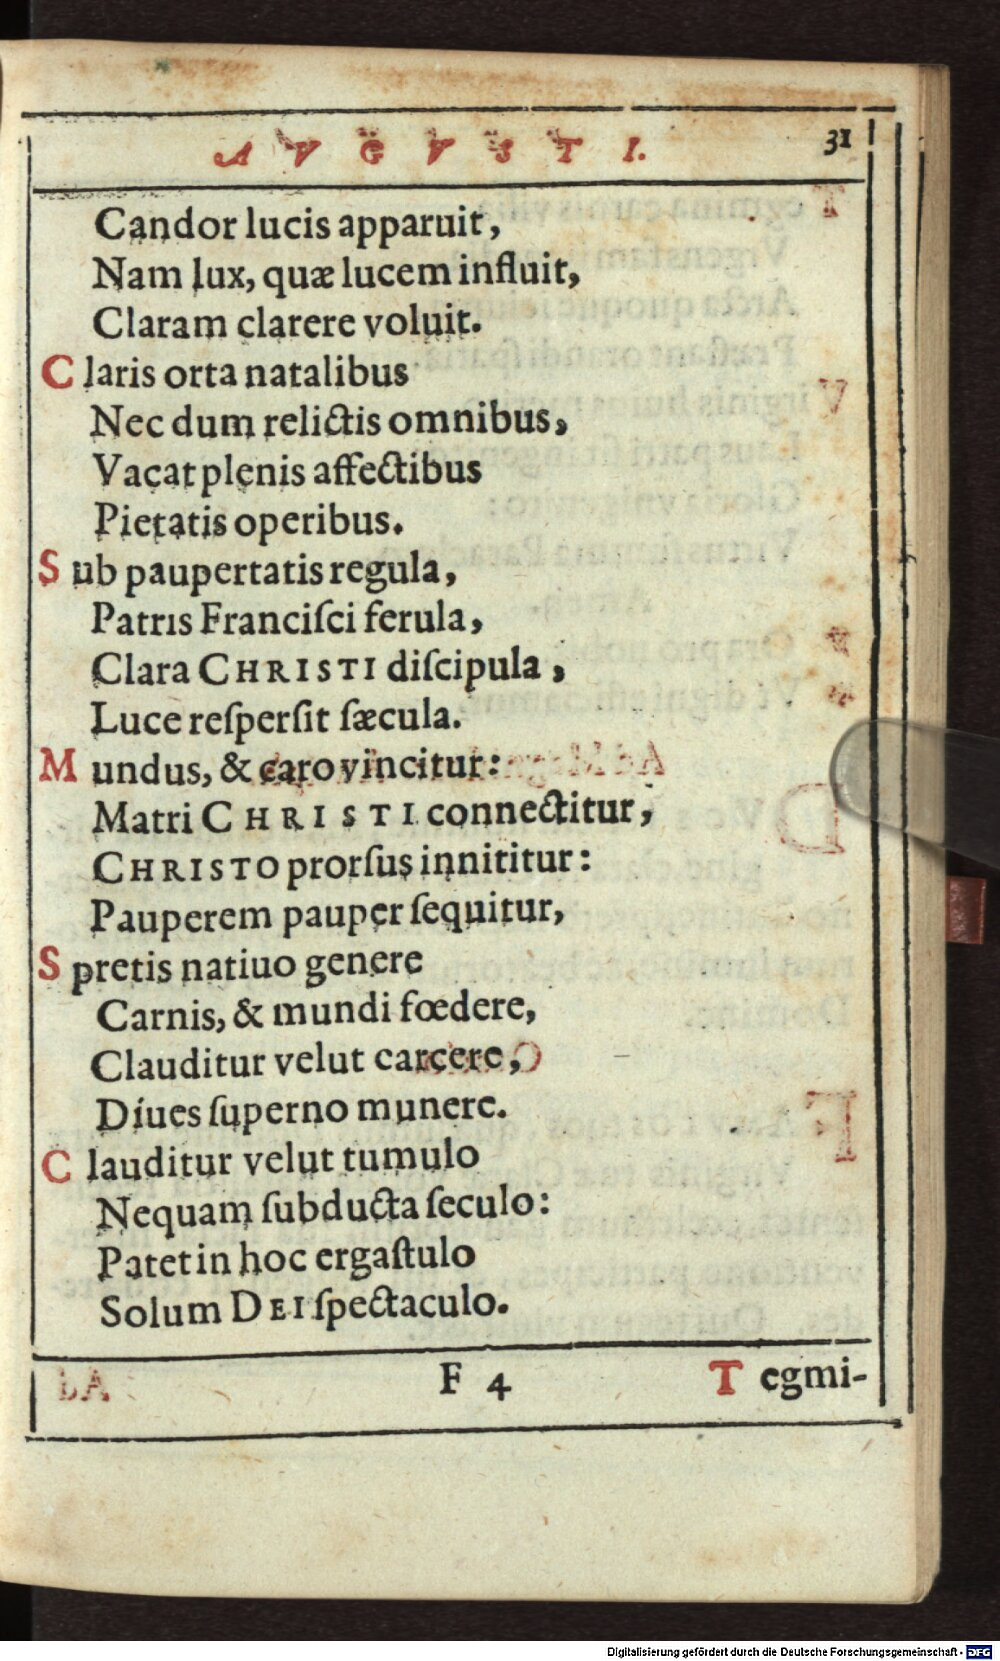 AVGVSTI. 31
Candor lucis apparuit,
Nam lux, quæ lucem influit,
Claram clarere voluit.
Claris orta natalibus
Nec dum relictis omnibus,
Vacat plenis affectibus
Pietatis operibus.
Sub paupertatis regula,
Patris Franciſci ferula,
Clara CHRISTI diſcipula,
Luce reſperſit ſæcula.
Mundus, & caro vincitur:
Matri CHRISTI connectitur,
CHRISTO prorſus innititur:
Pauperem pauper ſequitur,
Spretis natiuo genere
Carnis, & mundi fœdere,
Clauditur velut carcere,
Diues ſuperno munere.
Clauditur velut tumulo
Nequam ſubducta ſeculo:
Patet in hoc ergaſtulo
Solum DEI ſpectaculo.
F 4 Tegmi-
Digitalisierung gefördert durch die Deutsche Forschungsgemeinschaft - DFG